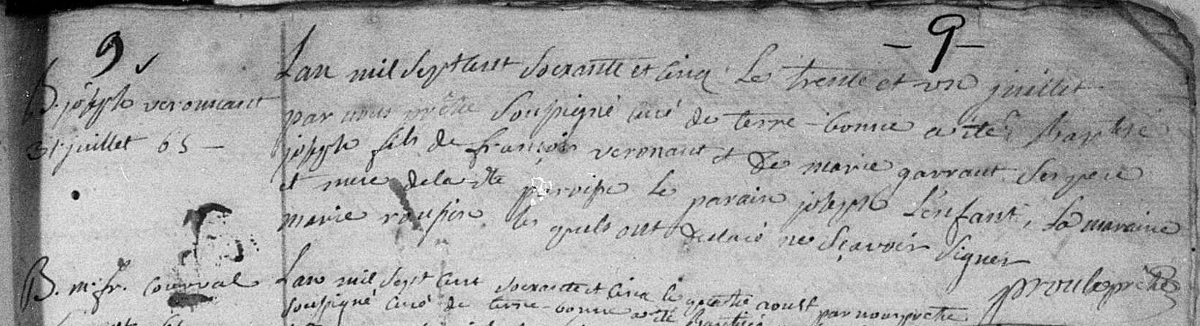 9
- 9 -
B. joseph veronneaut
31 juillet 65 -
Lan mil Sept cent Soixante et Cinq Le trente et un juillet
par nous prêtre Soussigné curé de terre-bonne a été baptisé
joseph fils de françois veronaut et De marie garraut Ses pere
et mere de la dte paroisse Le parain joseph L'enfant, La maraine
marie roussin les quels ont declaré ne Sçavoir Signer
proulx ptre
B. m. fr. Courval
Lan mil Sept cent Soixante et Cinq le quatre aoust par nous prêtre
Soussigné curé de terre-bonne a été baptisée